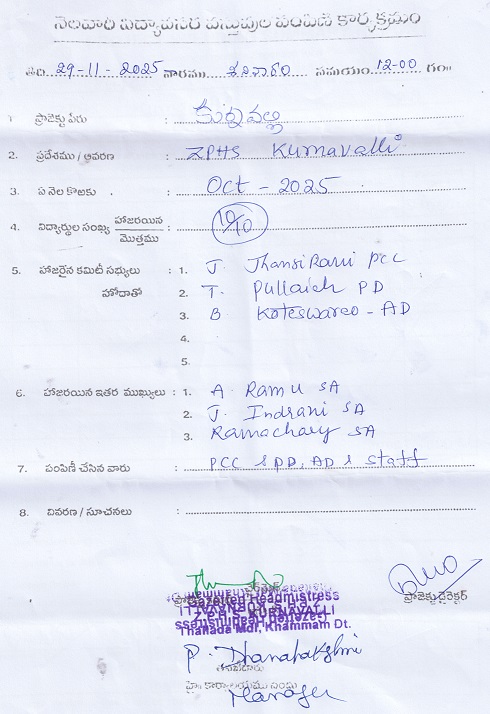 నెలవారి విద్యావసర వస్తువుల పంపిణి కార్యక్రమం
తేది 29-11-2025 వారము శనివారం సమయం 12-00 గం॥
1 ప్రాజెక్టు పేరు : కుర్నవల్లి
2. ప్రదేశము / ఆవరణ : ZPHS Kurnavalli
3. ఏ నెల కొఱకు : Oct - 2025
4. విద్యార్థుల సంఖ్య హాజరయిన / మొత్తము : 10/10
5. హాజరైన కమిటీ సభ్యులు : 1. J. Jhansi Rani PCC
హోదాతో 2. T. Pullaiah PD
3. B Koteswarao - AD
4.
5.
6. హాజరయిన ఇతర ముఖ్యులు : 1. A. Ramu SA
2. J. Indrani SA
3. Ramachary SA
7. పంపిణీ చేసిన వారు : PCC & PD, AD & Staff
8. వివరణ / సూచనలు :
Gazetted Headmistress
Z.P.H.S. KURNAVALLI
Thallada Mdl, Khammam Dt.
ప్రాజెక్టు డైరెక్టర్
P. Dhanalakshmi
Manager